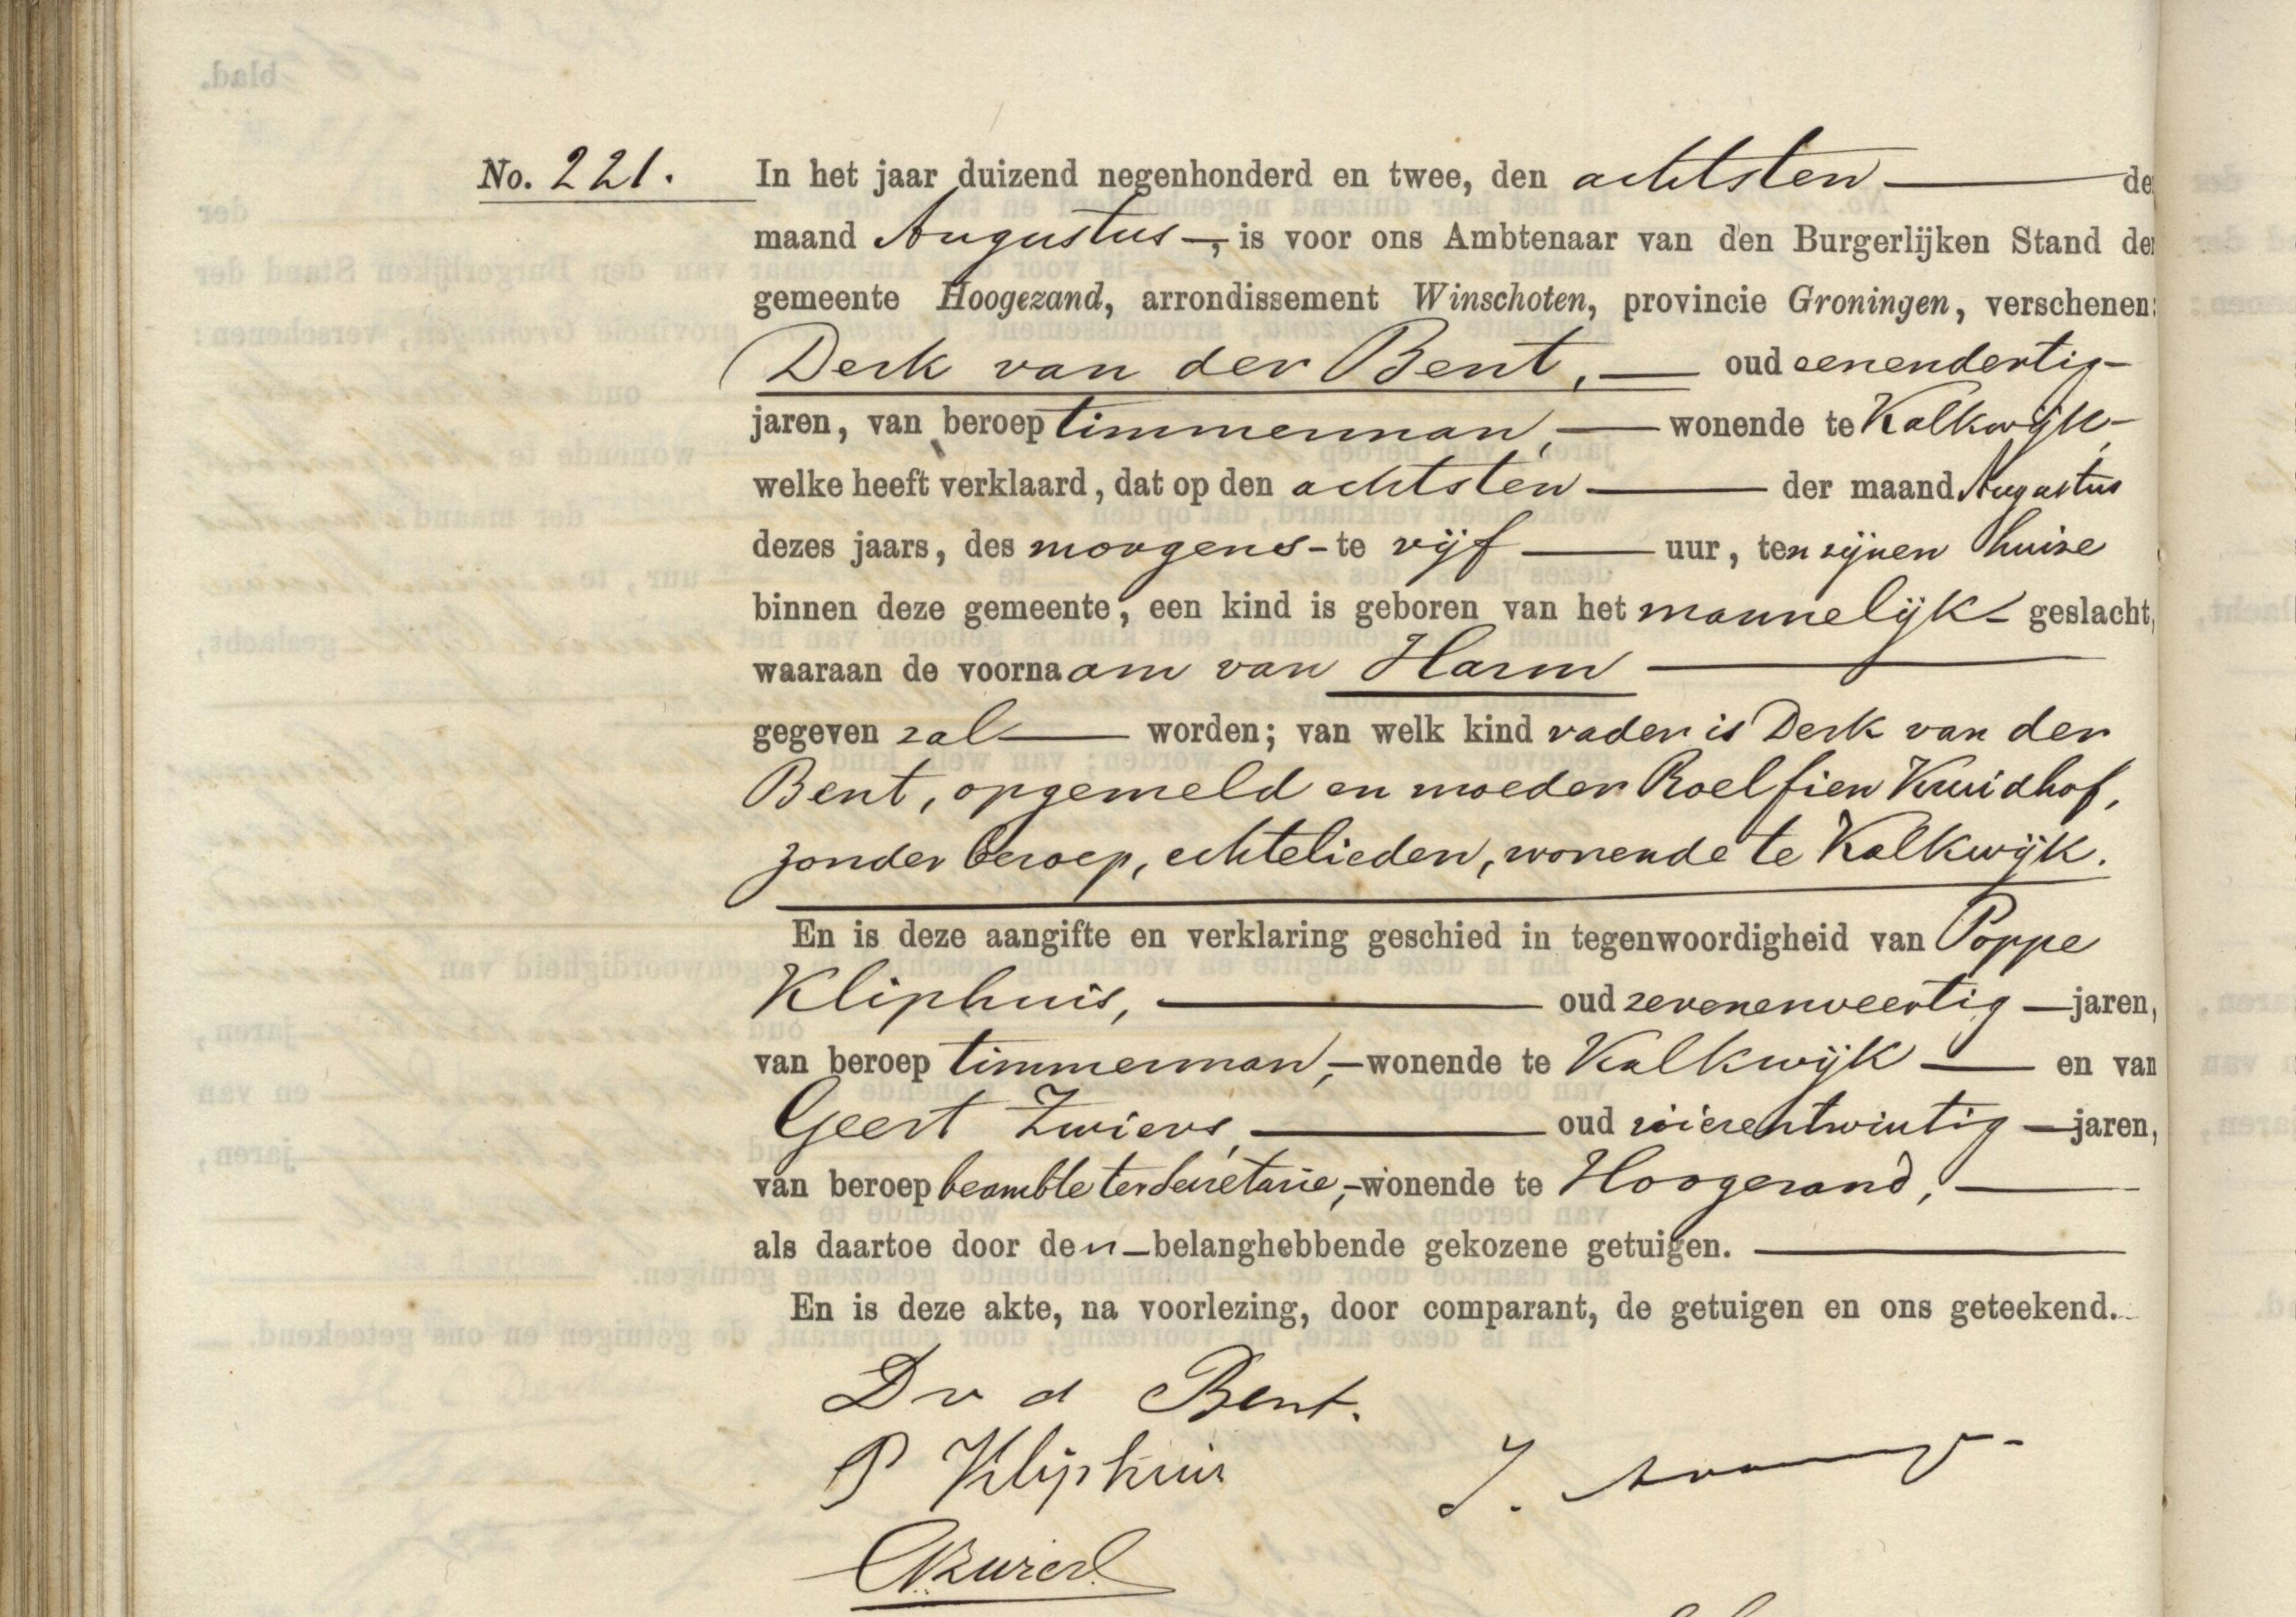 blad.
No. 221.
In het jaar duizend negenhonderd en twee, den achtsten de
maand Augustus, is voor ons Ambtenaar van den Burgerlijken Stand der
gemeente Hoogezand, arrondissement Winschoten, provincie Groningen, verschenen:
Derk van der Bent, oud eenendertig
jaren, van beroep timmerman, wonende te Kalkwijk,
welke heeft verklaard, dat op den achtsten der maand Augustus
dezes jaars, des morgens te vijf uur, ten zijnen huize
binnen deze gemeente, een kind is geboren van het mannelijk geslacht,
waaraan de voornaam van Harm
gegeven zal worden; van welk kind vader is Derk van der
Bent, opgemeld en moeder Roelfien Kruidhof,
zonder beroep, echtelieden, wonende te Kalkwijk.
En is deze aangifte en verklaring geschied in tegenwoordigheid van Poppe
Kliphuis, oud zevenenveertig jaren,
van beroep timmerman, wonende te Kalkwijk en van
Geert Zwiers, oud vierentwintig jaren,
van beroep beambte ter secretarie, wonende te Hoogezand,
als daartoe door den belanghebbende gekozene getuigen.
En is deze akte, na voorlezing, door comparant, de getuigen en ons geteekend.
D v d Bent.
P Kliphuis
GZwiers